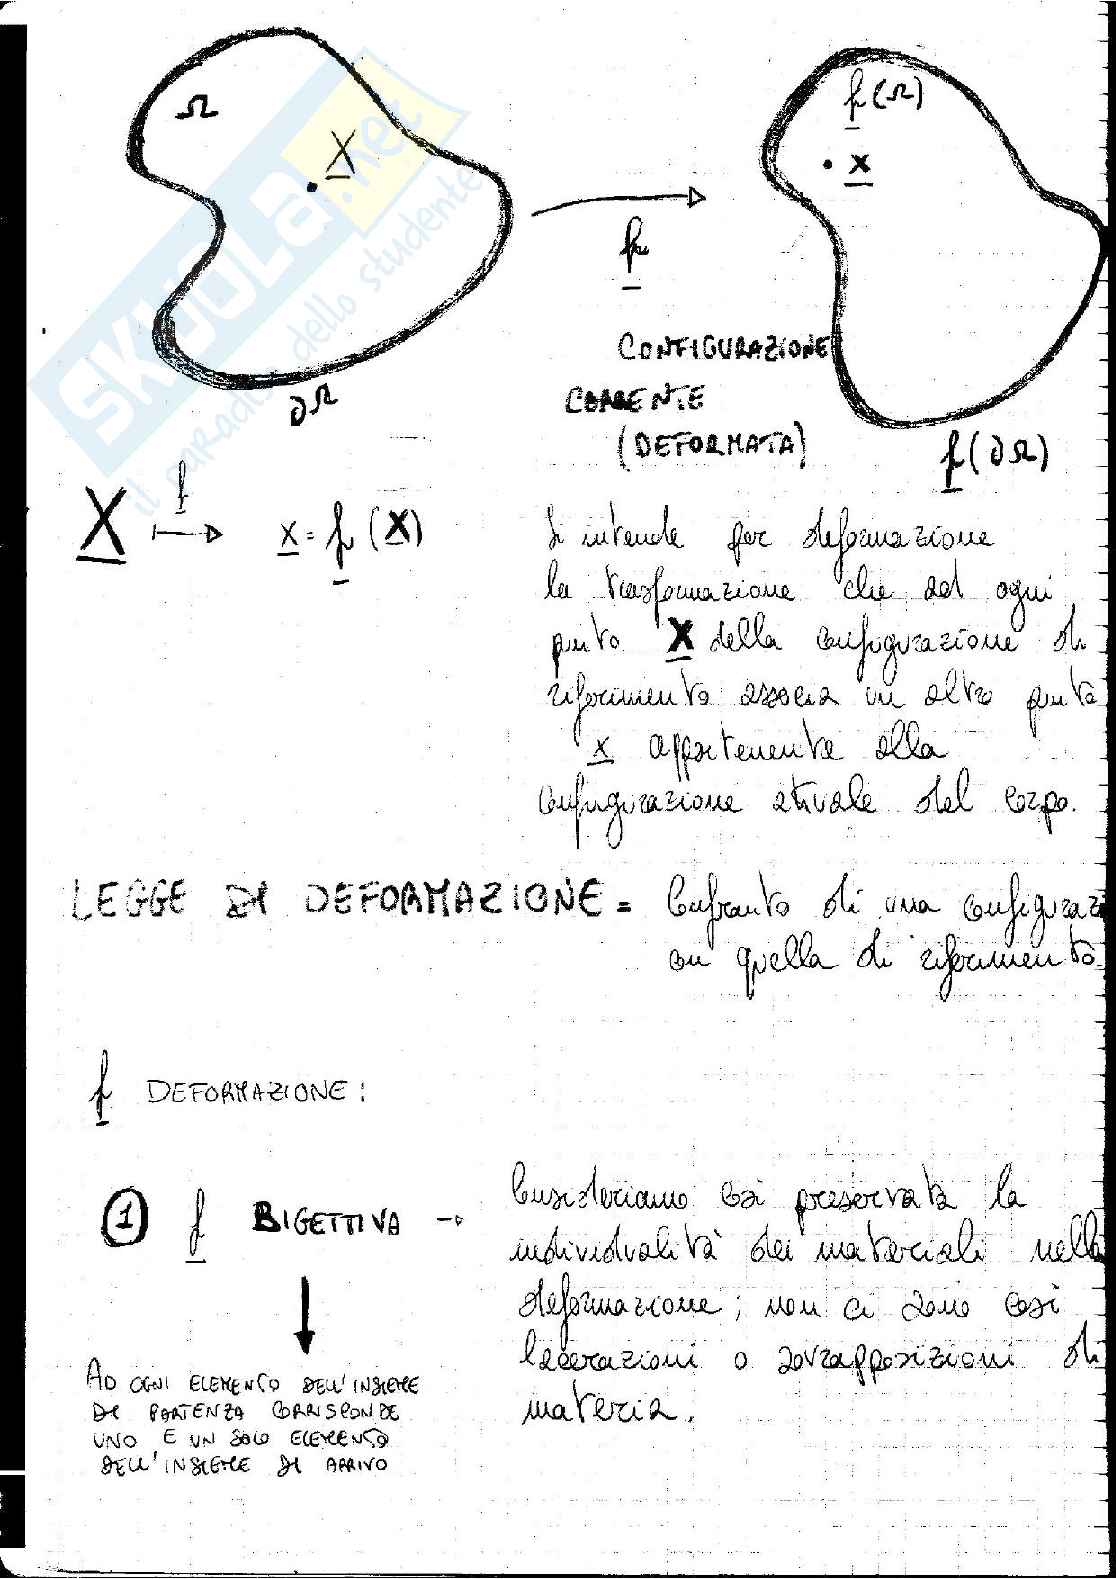 Ω
X
f(Ω)
x
f
CONFIGURAZIONE
CORRENTE
(DEFORMATA)
∂Ω
f(∂Ω)
SKUOLA.net
il paradiso dello studente
f
X ↦ x = f(X)
Si intende per deformazione
la trasformazione che ad ogni
punto X della configurazione di
riferimento associa un altro punto
x appartenente alla
configurazione attuale del corpo.
LEGGE DI DEFORMAZIONE = Confronto di una configurazi
con quella di riferimento
f DEFORMAZIONE:
1 f BIGETTIVA →
Consideriamo così preservata la
individualità dei materiali nella
deformazione; non ci sono così
lacerazioni o sovrapposizioni di
materia.
AD OGNI ELEMENTO DELL'INSIEME
DI PARTENZA CORRISPONDE
UNO E UN SOLO ELEMENTO
DELL'INSIEME DI ARRIVO